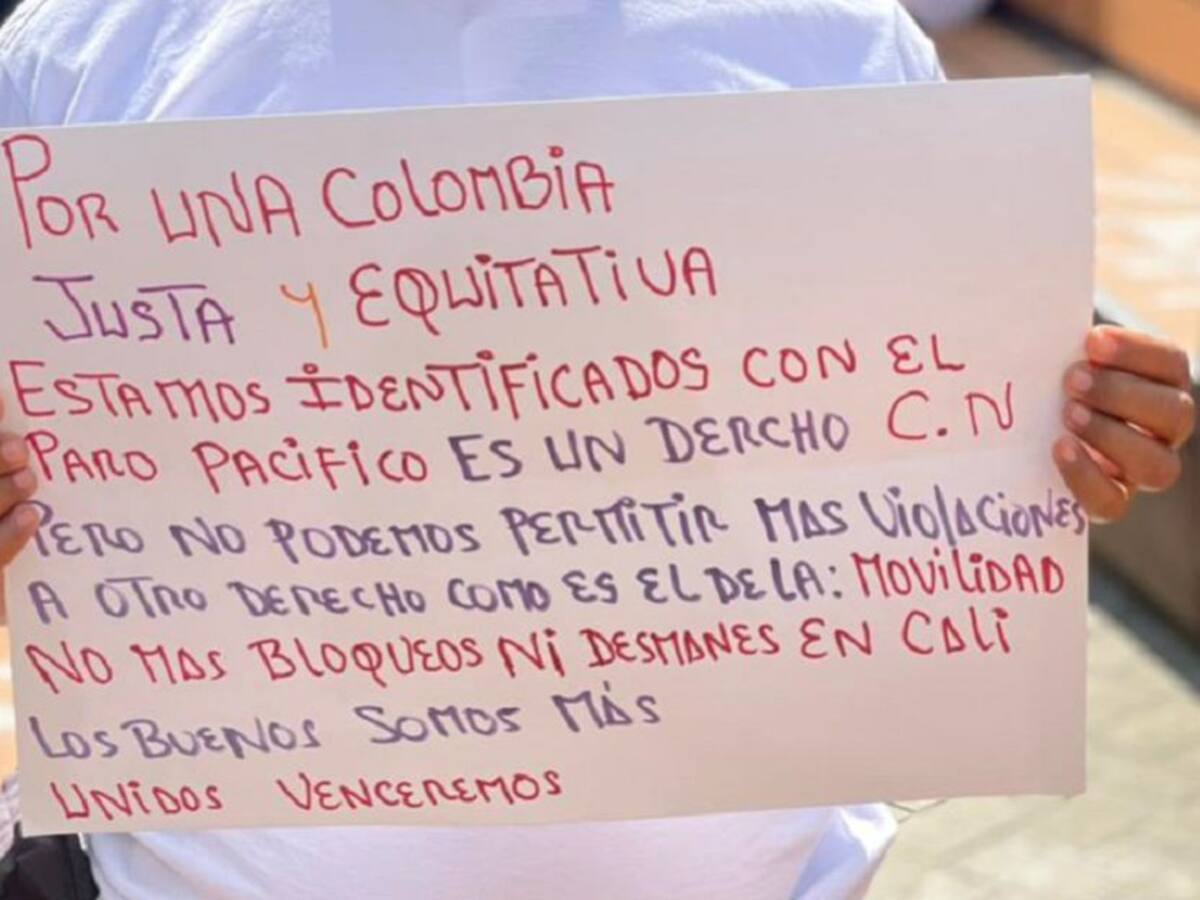 POR UNA COLOMBIA
JUSTA Y EQUITATIVA
ESTAMOS IDENTIFICADOS CON EL
PARO PACIFICO ES UN DERCHO C.N
PERO NO PODEMOS PERMITIR MAS VIOLACIONES
A OTRO DERECHO COMO ES EL DE LA: MOVILIDAD
NO MAS BLOQUEOS NI DESMANES EN CALI
LOS BUENOS SOMOS MÁS
UNIDOS VENCEREMOS